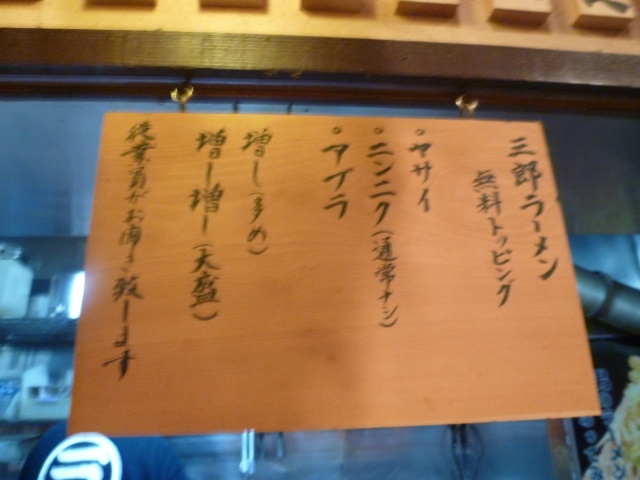 三郎ラーメン
無料トッピング
。ヤサイ
。ニンニク(通常ナシ)
。アブラ
増し(多め)
増し増し(大盛)
従業員がお聞き致します